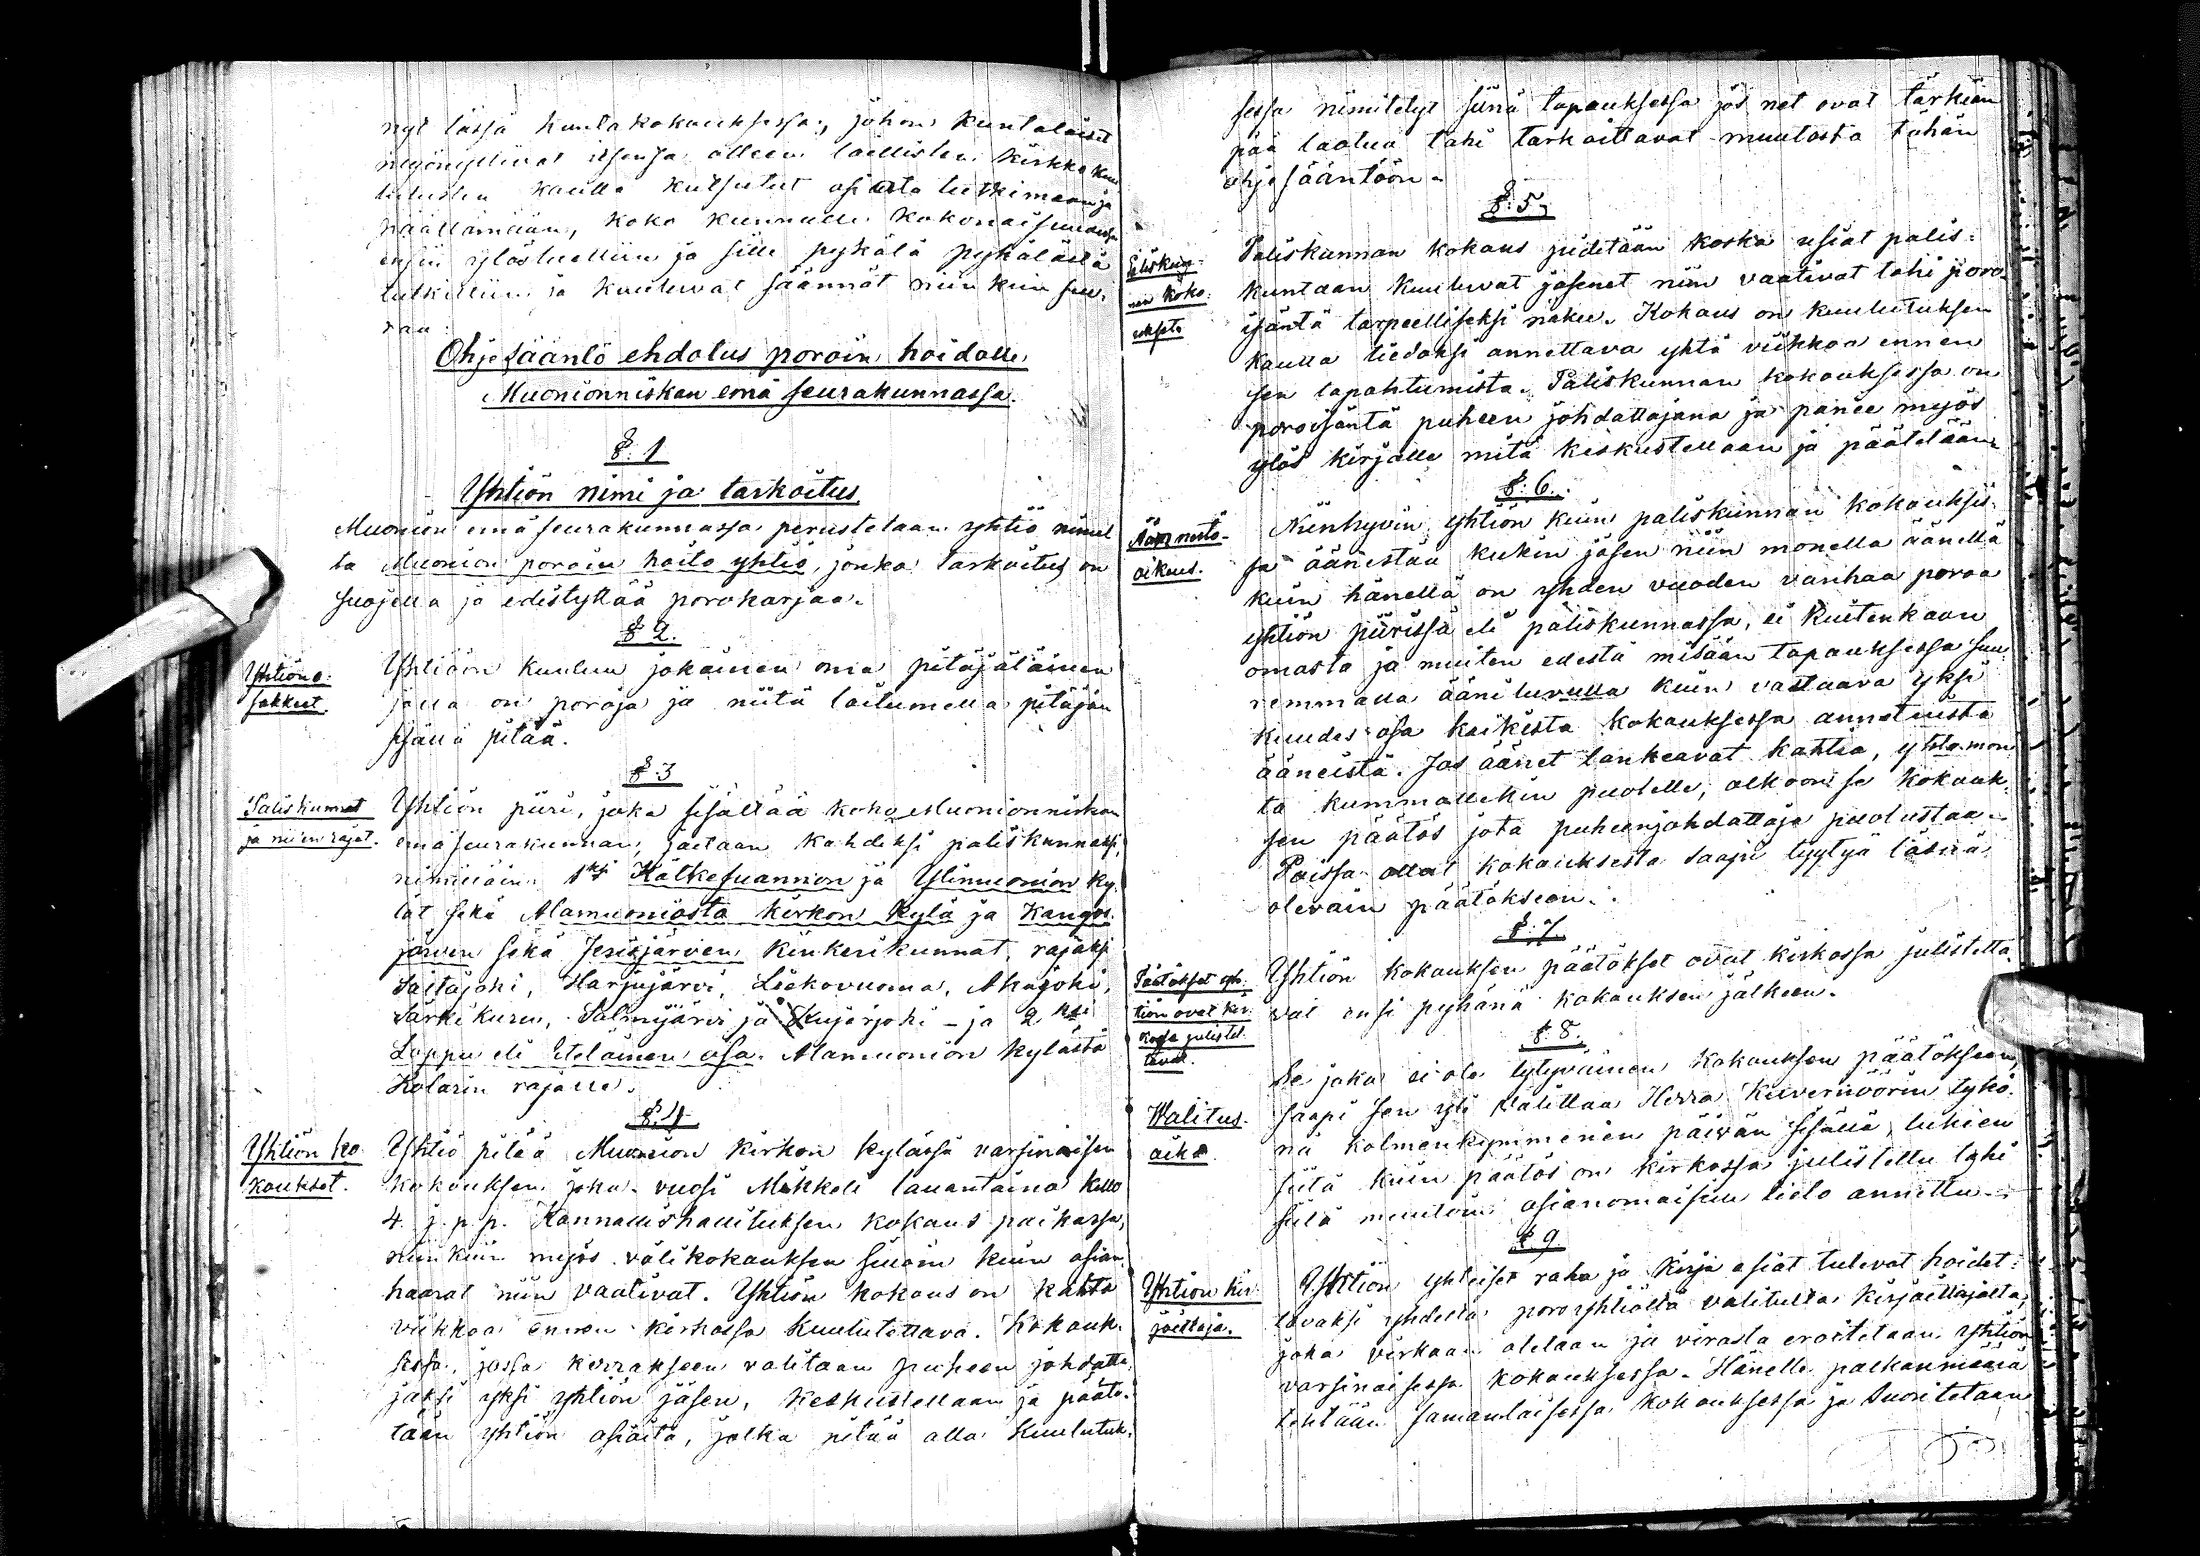 nyt tässä kuntakokouksessa, johon kuntalaiset
myönsyttivät itsensä olleen laillisten kirkko kuu
lutusten kautta kutsutut asiata tutkimaan ja
päättämään, koko kunnalle kokonaisuudessa
ensin ylösluettiin ja sitte pykälä pykälästä
tutkittiin ja kuuluvat säännöt niin kuin seu-
raa:
Ohjesääntö ehdotus poroin hoidolle
Muonionniskan emä seurakunnassa.
§. 1
Yhtiön nimi ja tarkoitus.
Muonion emäseurakunnassa perustetaan yhtiö nimel
tä Muonion poroin hoito yhtiö, jonka tarkoitus on
suojella ja edistyttää porokarjaa.
§ 2.
Yhtiön o-
sakkeet.
Yhtiöön kuuluu jokainen oma pitäjäläinen
jolla on poroja ja niitä laitumella pitäjän
sisällä pitää.
§. 3
Paliskunnat
ja niien rajat.
Yhtiön piiri, joka sisältää koko Muonionniskan
emäseurakunnan, jaetaan kahdeksi paliskunnaksi,
nimittäin 1ksi Kätkesuannon ja Ylimuonion ky-
lät sekä Alamuoniosta kirkon kylä ja Kangos-
järven sekä Jerisjärven kinkerikunnat, rajaksi
Saitajoki, Harjujärvi, Liekovuoma, Akäjoki,
Särkikuru, Salmijärvi ja Kujerjoki - ja 2ksi
Loppu eli Eteläinen osa Alamuonion kylästä
Kolarin rajalle.
§. 4
Yhtiön ko
koukset.
Yhtiö pitää Muonion kirkon kylässä varsinaisen
kokouksen joka vuosi Mikkeli lauantaina kello
4 j. p. p. Kunnallishallituksen kokous paikassa,
niinkuin myös välikokouksen silloin kuin asian
haarat niin vaativat. Yhtiön kokous on kahta
viikkoa ennen kirkossa kuulutettava. Kokouk-
sessa, jossa kerrakseen valitaan puheen johdatta-
jaksi yksi yhtiön jäsen, keskustellaan ja pääte-
tään yhtiön asioita, jotka pitää olla kuulutuk-
sessa nimitetyt siinä tapauksessa jos net ovat tärkiäm
pää laatua tahi tarkoittavat muutosta tähän
ohjesääntöön.
§. 5.
Paliskun-
nan koko-
ukset.
Paliskunnan kokous pidetään koska asiat palis-
kuntaan kuuluvat jäsenet niin vaativat tahi poro-
isäntä tarpeelliseksi näkee. Kokous on kuulutuksen
kautta tiedoksi annettava yhtä viikkoa ennen
sen tapahtumista. Paliskunnan kokouksessa on
poroisäntä puheen johdattajana ja panee myös
ylös kirjalle mitä keskustellaan ja päätetään.
§. 6.
Äännestö-
oikeus.
Niinhyvin yhtiön kuin paliskunnan kokouksis-
sa äänestää kukin jäsen niin monella äänellä
kuin hänellä on yhden vuoden vanhaa poroa
yhtiön piirissä eli paliskunnassa, ei kuitenkaan
omasta ja muiten edestä misään tapauksessa suu-
remmalla ääniluvulla kuin vastaava yksi
kuudes osa kaikista kokouksessa annetuista
ääneistä. Jos äänet lankeavat kahtia, yhtä mon
ta kummallekin puolelle, olkoon se kokouk-
sen päätös jota puheenjohdattaja puolustaa.
Poissa olleet kokouksesta saapi tyytyä läsnä-
olevain päätökseen.
§. 7.
Päätökset yh-
tiön ovat kir-
kossa julistet-
tavat.
Yhtiön kokouksen päätökset ovat kirkossa julistetta-
vat ensi pyhänä kokouksen jälkeen.
§. 8.
Walitus-
aika.
Se joka ei ole tytyväinen kokouksen päätökseen,
saapi sen yli valittaa Herra Kuvernöörin tykö-
nä kolmenkymmenen päivän sisällä, lukien
siitä kuin päätös on kirkossa julistettu tahi
siitä muutoin asianomaisille tieto annettu.
§ 9.
Yhtion kir-
joittaja.
Yhtiön yhteiset raha ja kirja asiat tulevat hoidet-
tavaksi yhdeltä poroyhtiöltä valitulta kirjoittajalta,
joka virkaan otetaan ja virasta eroitetaan yhtiön
varsinaisessa kokouksessa. Hänelle palkanmäärä
tehdään samanlaisessa kokouksessa ja suoritetaan